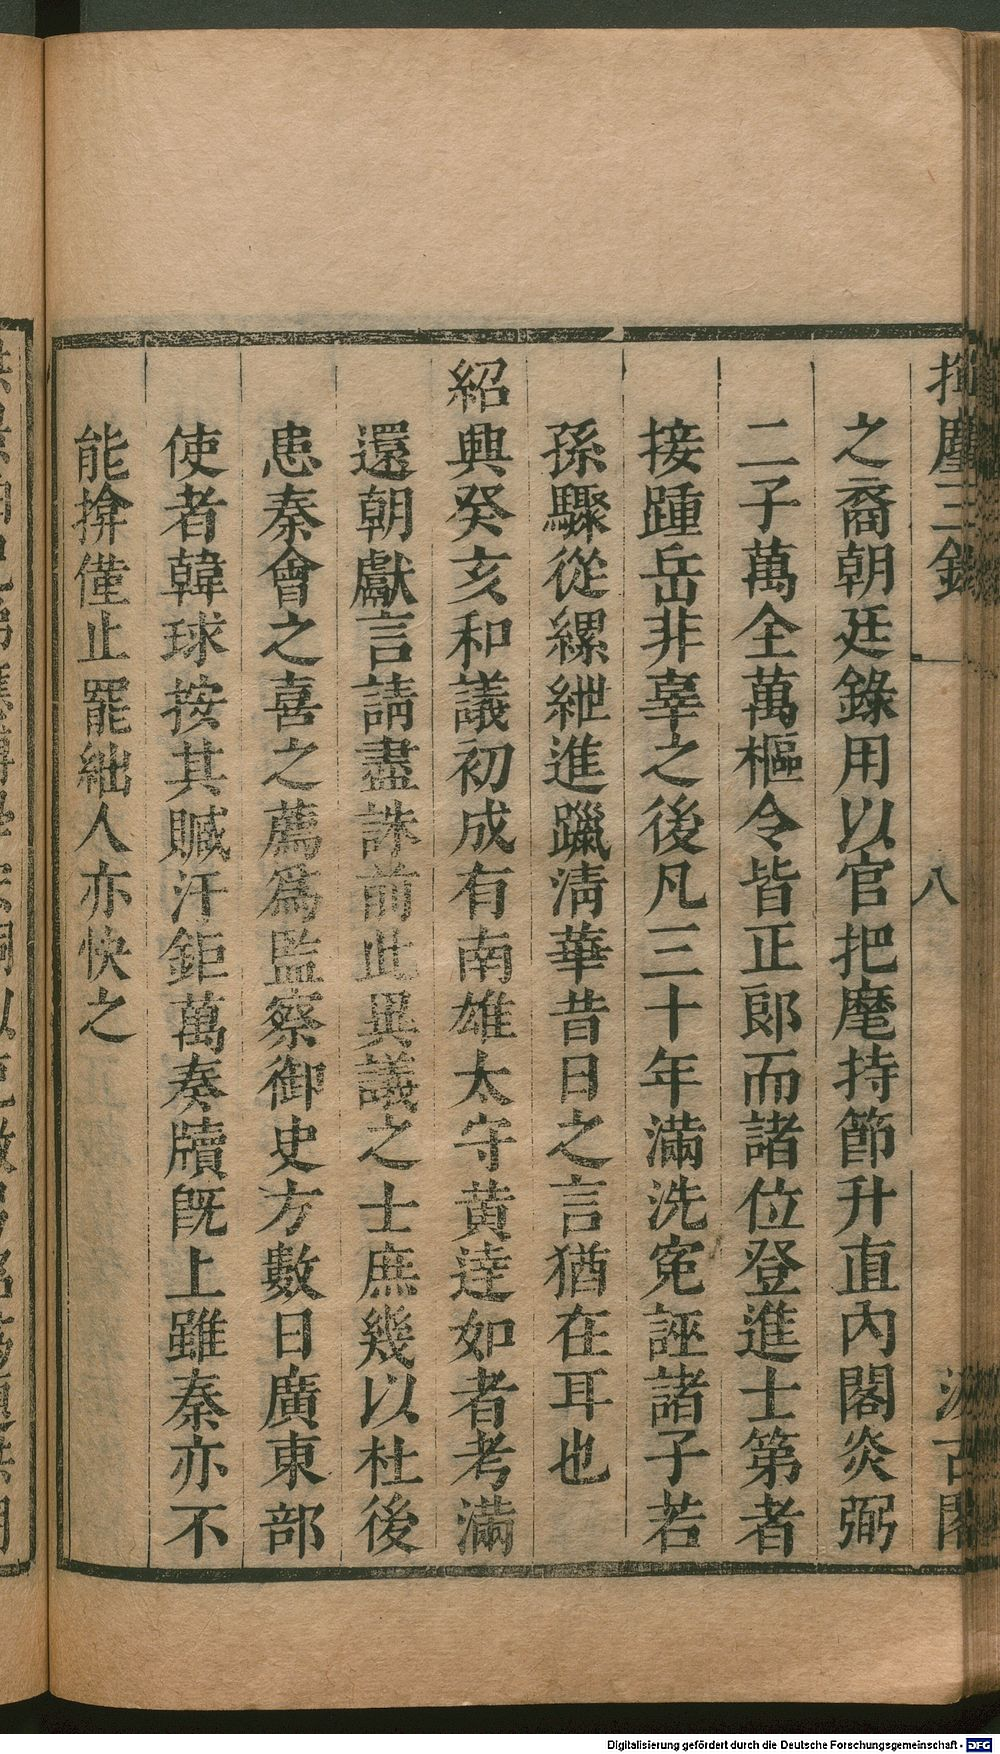 揮麈三錄
八
汲古閣
之裔朝廷錄用以官把麾持節升直內閣炎弼
二子萬全萬樞令皆正郞而諸位登進士第者
接踵岳非辜之後凡三十年滿洗寃誣諸子若
孫驟從縲紲進躐淸華昔日之言猶在耳也
紹興癸亥和議初成有南雄太守黃達如者考滿
還朝獻言請盡誅前此異議之士庶幾以杜後
患秦會之喜之薦爲監察御史方數日廣東部
使者韓球按其贓汗鉅萬奏牘旣上雖秦亦不
能揜僅止罷絀人亦快之
Digitalisierung gefördert durch die Deutsche Forschungsgemeinschaft - DFG